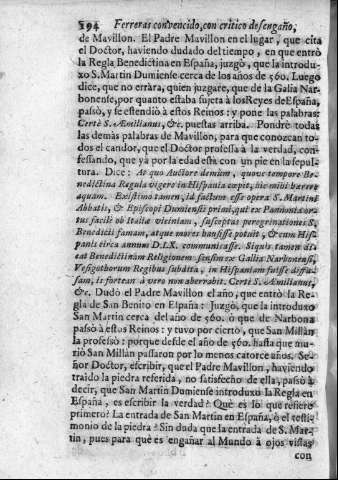 194 Ferreras convencido, con critico desengaño,
de Mavillon. El Padre Mavillon en el lugar, que cita
el Doctor, haviendo dudado del tiempo, en que entrò
la Regla Benedictina en España, juzgò, que la introdu-
xo S. Martin Dumiense cerca de los años de 560. Luego
dice, que no erràra, quien juzgare, que de la Galia Nar-
bonense, por quanto estaba sujeta à los Reyes de España,
passò, y se estendiò à estos Reinos: y pone las palabras:
Certè S. Æmilianus, &c. puestas arriba. Pondrè todas
las demàs palabras de Mavillon, para que conozcan to-
dos el candor, que el Doctor professa à la verdad, con-
fessando, que yà por la edad està con un pie en la sepul-
tura. Dice: At quo Auctore demùm, quove tempore Be-
nedictina Regula vigere in Hispania cœpit, hic mihi hærere
aquam. Existimo tamen, id factum esse opera S. Martini
Abbatis, & Episcopi Dumiensis primi, qui ex Pannonia or-
tus facilè ob Italiæ viciniam, susceptas peregrinationes S.
Benedicti famam, atque mores hausisse potuit, & cum Hisp-
panis circa annum D.LX. communicasse. Siquis tamen
Benedictinàm Religionem sensim ex Gallia Narbonensi,
Vesigothorum Regibus subdita, in Hispaniam fuisse diffu-
sam, is fortean à vero non aberrabit. Certè S. Æmilianus,
&c. Dudò el Padre Mavillon el año, que entrò la Re-
gla de San Benito en España: Juzgò, que la introduxo
San Martin cerca del año de 560. ò que de Narbona
passò à estos Reinos: y tuvo por cierto, que San Millàn
la professò: porque desde el año de 560. hasta que mu-
riò San Millàn passaron por lo menos catorce años. Se-
ñor Doctor, escribir, que el Padre Mavillon, haviendo
traido la piedra referida, no satisfecho de ella, passò à
decir, que San Martin Dumiense introduxo la Regla en
España, es escribir la verdad? Què es lo que refiere
primero? La entrada de San Martin en España, ò el testi-
monio de la piedra? Sin duda que la entrada de S. Mar-
tin, pues para què es engañar al Mundo à ojos vistas
con